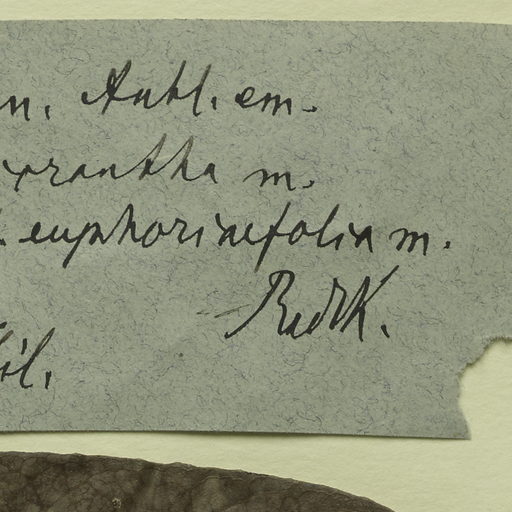 n. Aubl. em.
yrantha m.
. euphoriaefolia m.
Radlk.
öl.